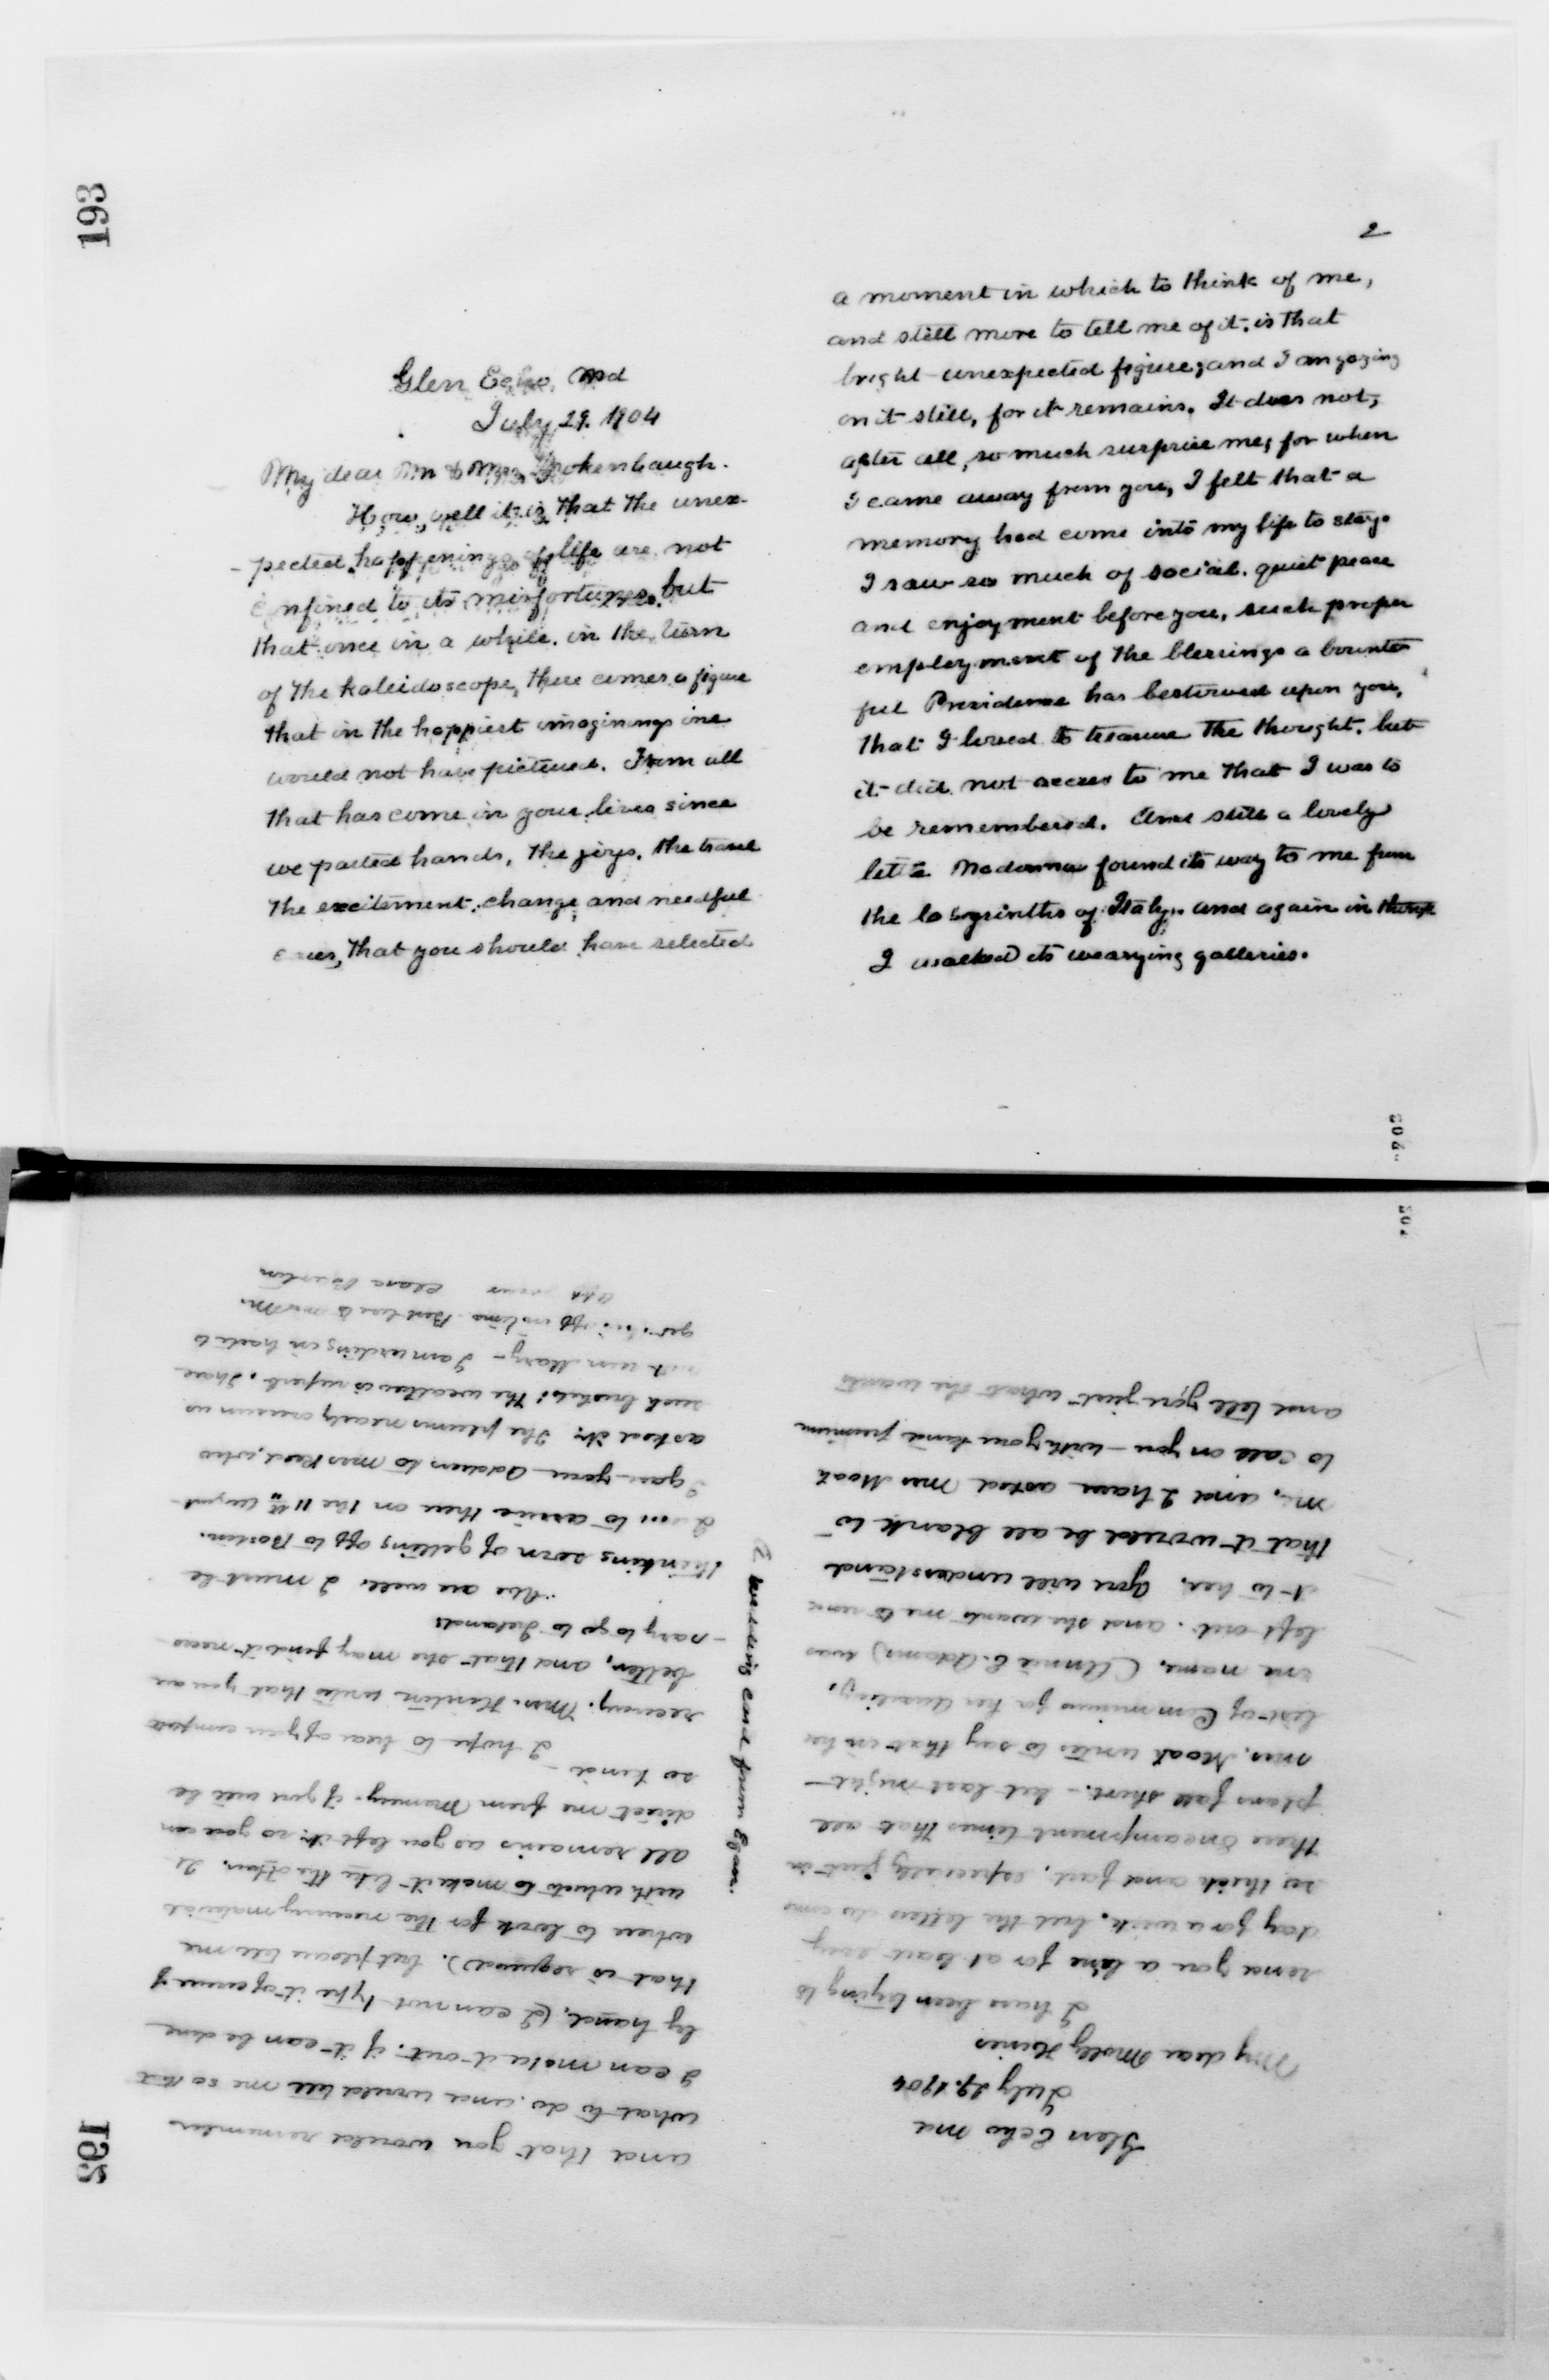 193
Glen Echo, Md
July 29. 1904
My dear Mr & Mrs. Brokenbaugh.
How well it is that the unex-
-pected happenings of life are not
confined to its misfortunes, but
that once in a while, in the turn
of the kaleidoscope, there comes a figure
that in the happiest imaginings one
would not have pictured. From all
that has come in your lives since
we parted hands, the joys, the travel
the excitement, change and needful
cares, that you should have selected
2
a moment in which to think of me,
and still more to tell me of it, is that
bright unexpected figure, and I am gazing
on it still, for it remains. It does not,
after all, so much surprise me, for when
I came away from you, I felt that a
memory had come into my life to stay.
I saw so much of social, quiet peace
and enjoyment before you, such proper
employment of the blessings a bounti
ful Providence has bestowed upon you,
that I loved to treasure the thought, but
it did not occur to me that I was to
be remembered. And still a lovely
little Madonna found its way to me from
the labyrinths of Italy, and again in thought
I walked its wearying galleries.
203
203
192
Glen Echo Md
July 29. 1904
My dear Molly Hoines
I have been trying to
send you a line for at least every
day for a week, but the letters do come
so thick and fast, especially just in
these encampment times that all
plans fall short, - but last night
Mrs. Moat writes to say that in her
list of Commissions for her Auxiliary,
one name, (Annie E. Adams) was
left out, and she wants me to send
it to her. You will understand
that it would be all blank to
me, and I have asked Mrs Moat
to call on you - with your kind permission
and tell you just what she wants
and that you would remember
what to do, and would tell me so that
I can make it out, if it can be done
by hand, (I cannot type it of course if
that is required), but please tell me
where to look for the necessary materials
with which to make it like the other. It
all remains as you left it, so you can
direct me from Memory, if you will be
so kind -
I hope to hear of your complete
recovery. Mrs. Hinton writes that you are
better, and that she may find it neces
-sary to go to Ireland.
We are well. I must be
thinking soon of getting off to Boston.
I am to arrive there on the 11th August
I gave your address to Mrs Reed, who
asked it. The plums nearly ripen in
such bushels; the weather is superb. I have
not seen Mary - I am writing in haste to
get this off in time. Best love to Mrs M.
Aff yours Clara Barton